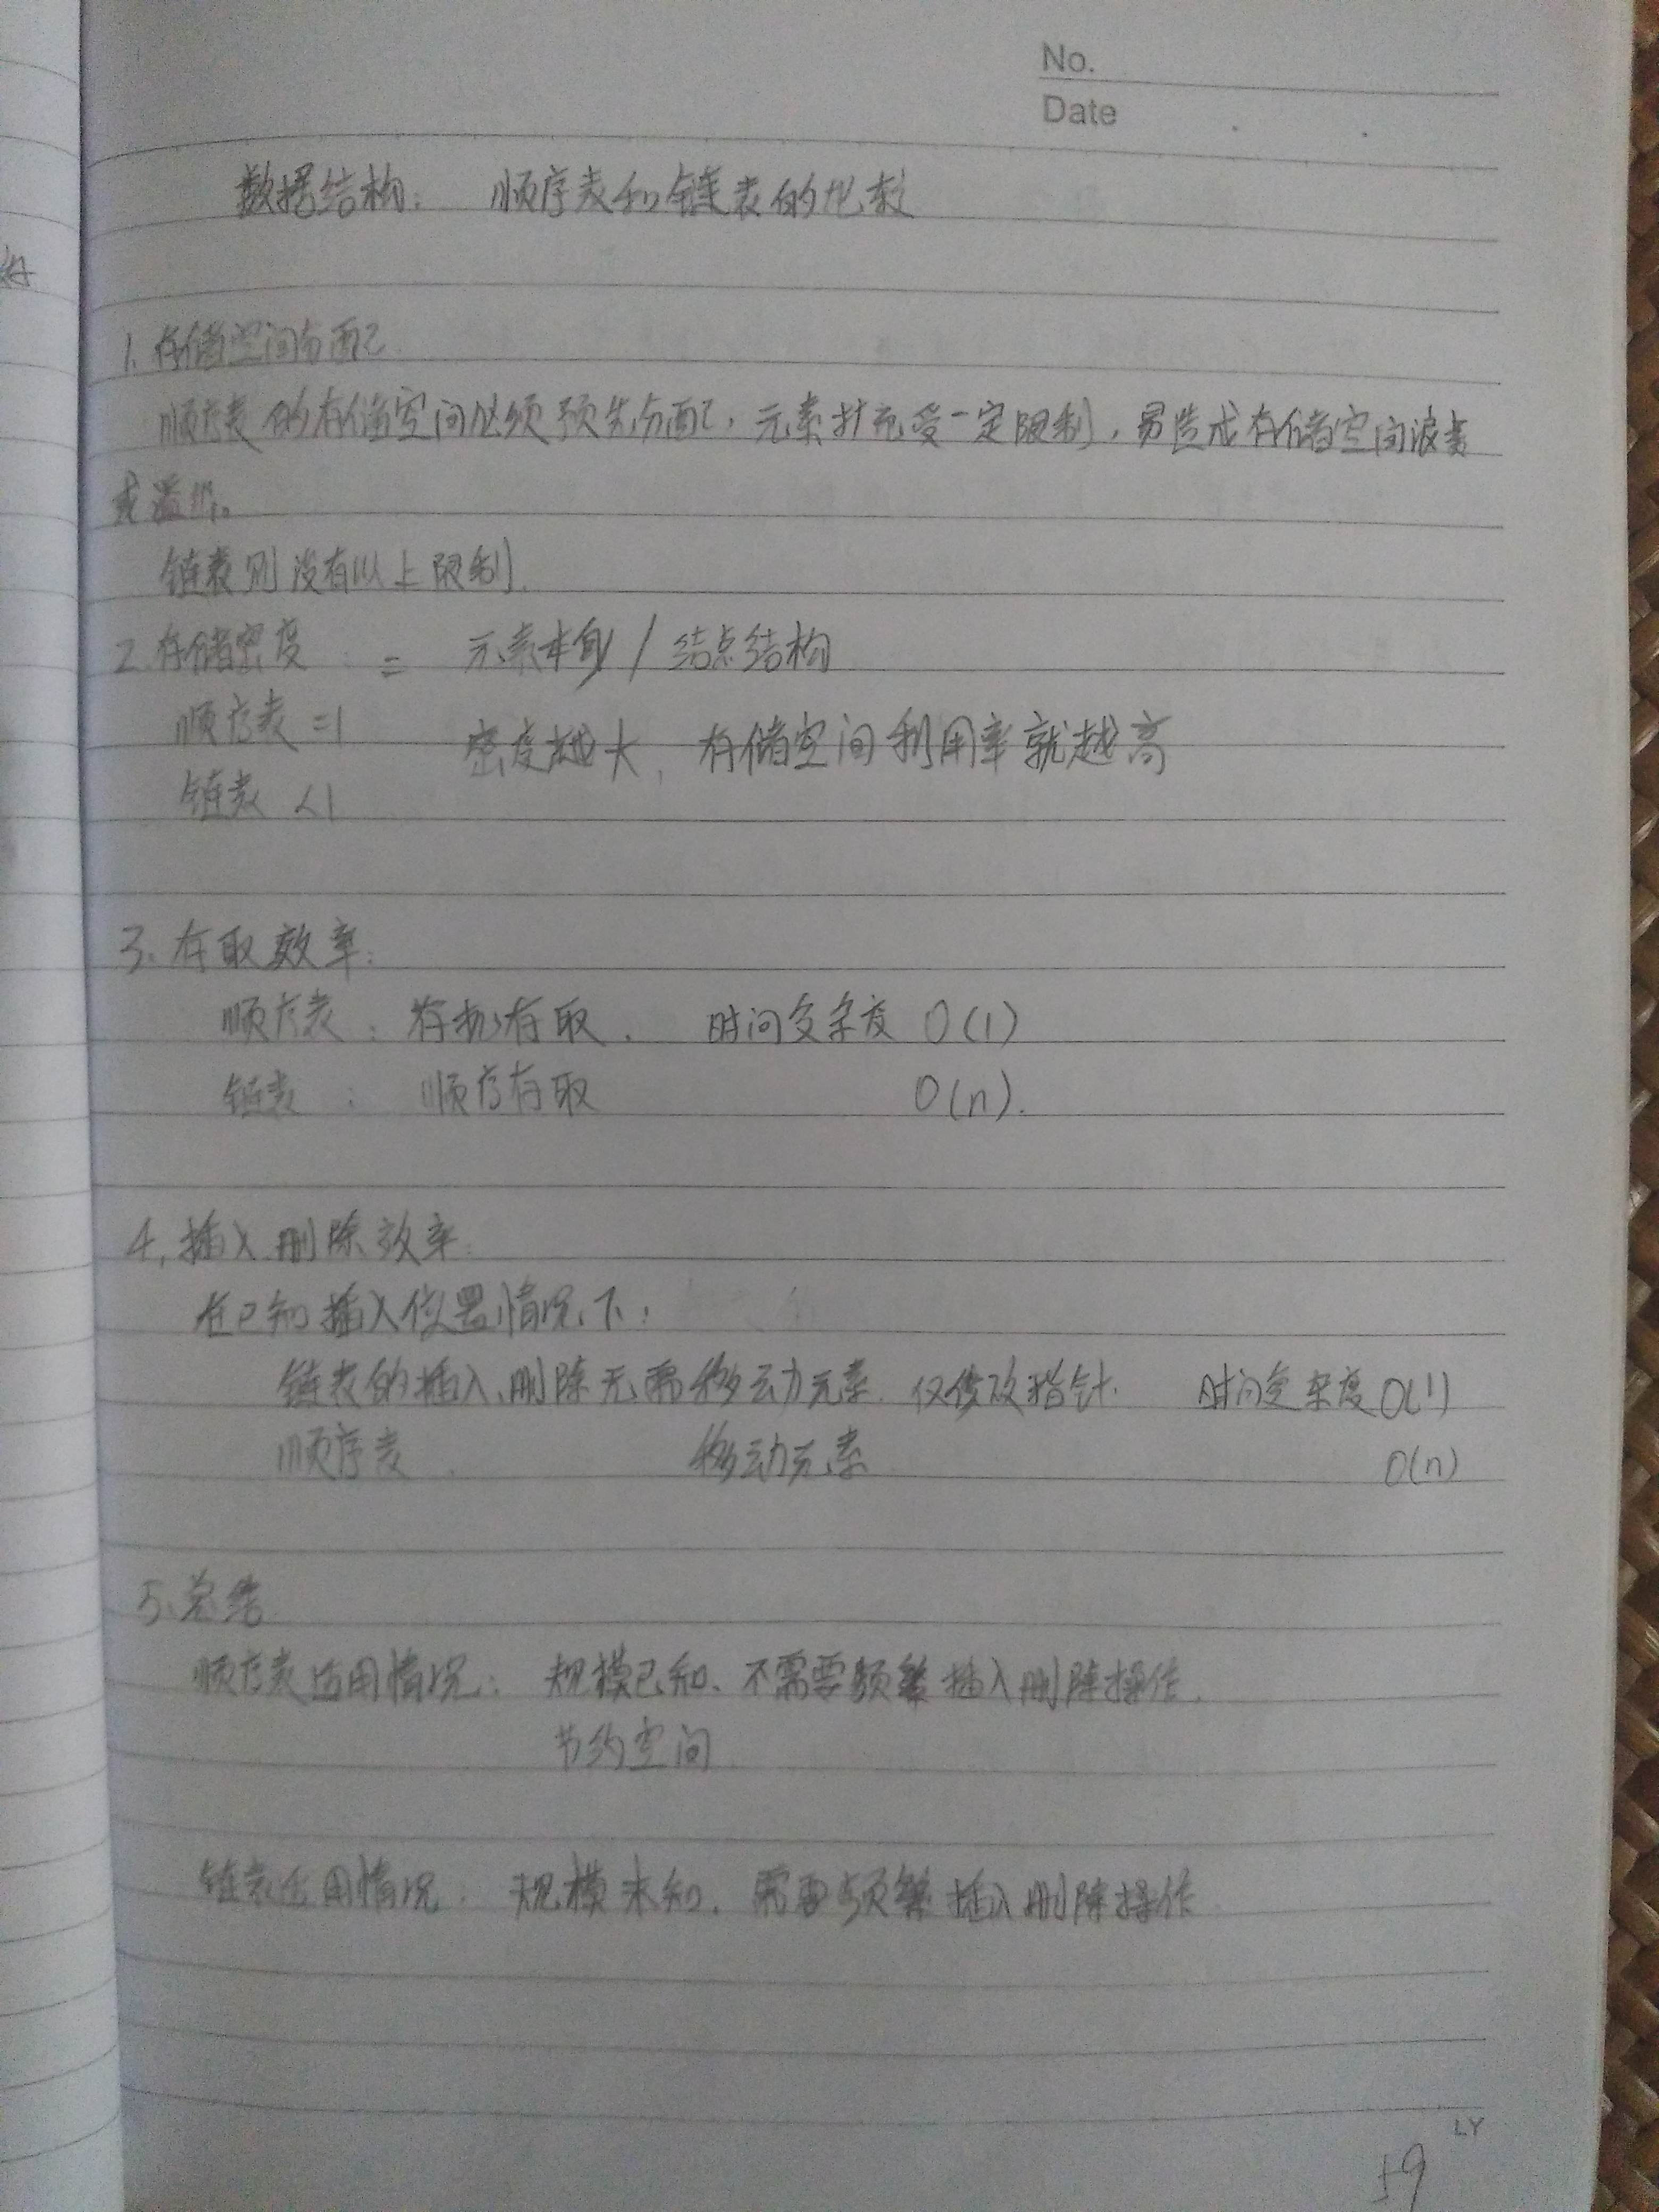 No.
Date
数据结构: 顺序表和链表的比较
1. 存储空间分配
顺序表的存储空间必须预先分配, 元素扩充受一定限制, 易造成存储空间浪费
或溢出。
链表则没有以上限制.
2. 存储密度 = 元素本身 / 结点结构
顺序表 =1
密度越大, 存储空间利用率就越高
链表 <1
3. 存取效率:
顺序表: 存取. 时间复杂度 O(1)
链表: 顺序存取 O(n).
4. 插入删除效率:
在已知插入位置情况下:
链表的插入、删除无需移动元素. 仅修改指针. 时间复杂度O(1)
顺序表. 移动元素 O(n)
5. 总结
顺序表适用情况: 规模已知、不需要频繁插入删除操作.
节约空间
链表适用情况: 规模未知. 需要频繁插入删除操作.
LY
59